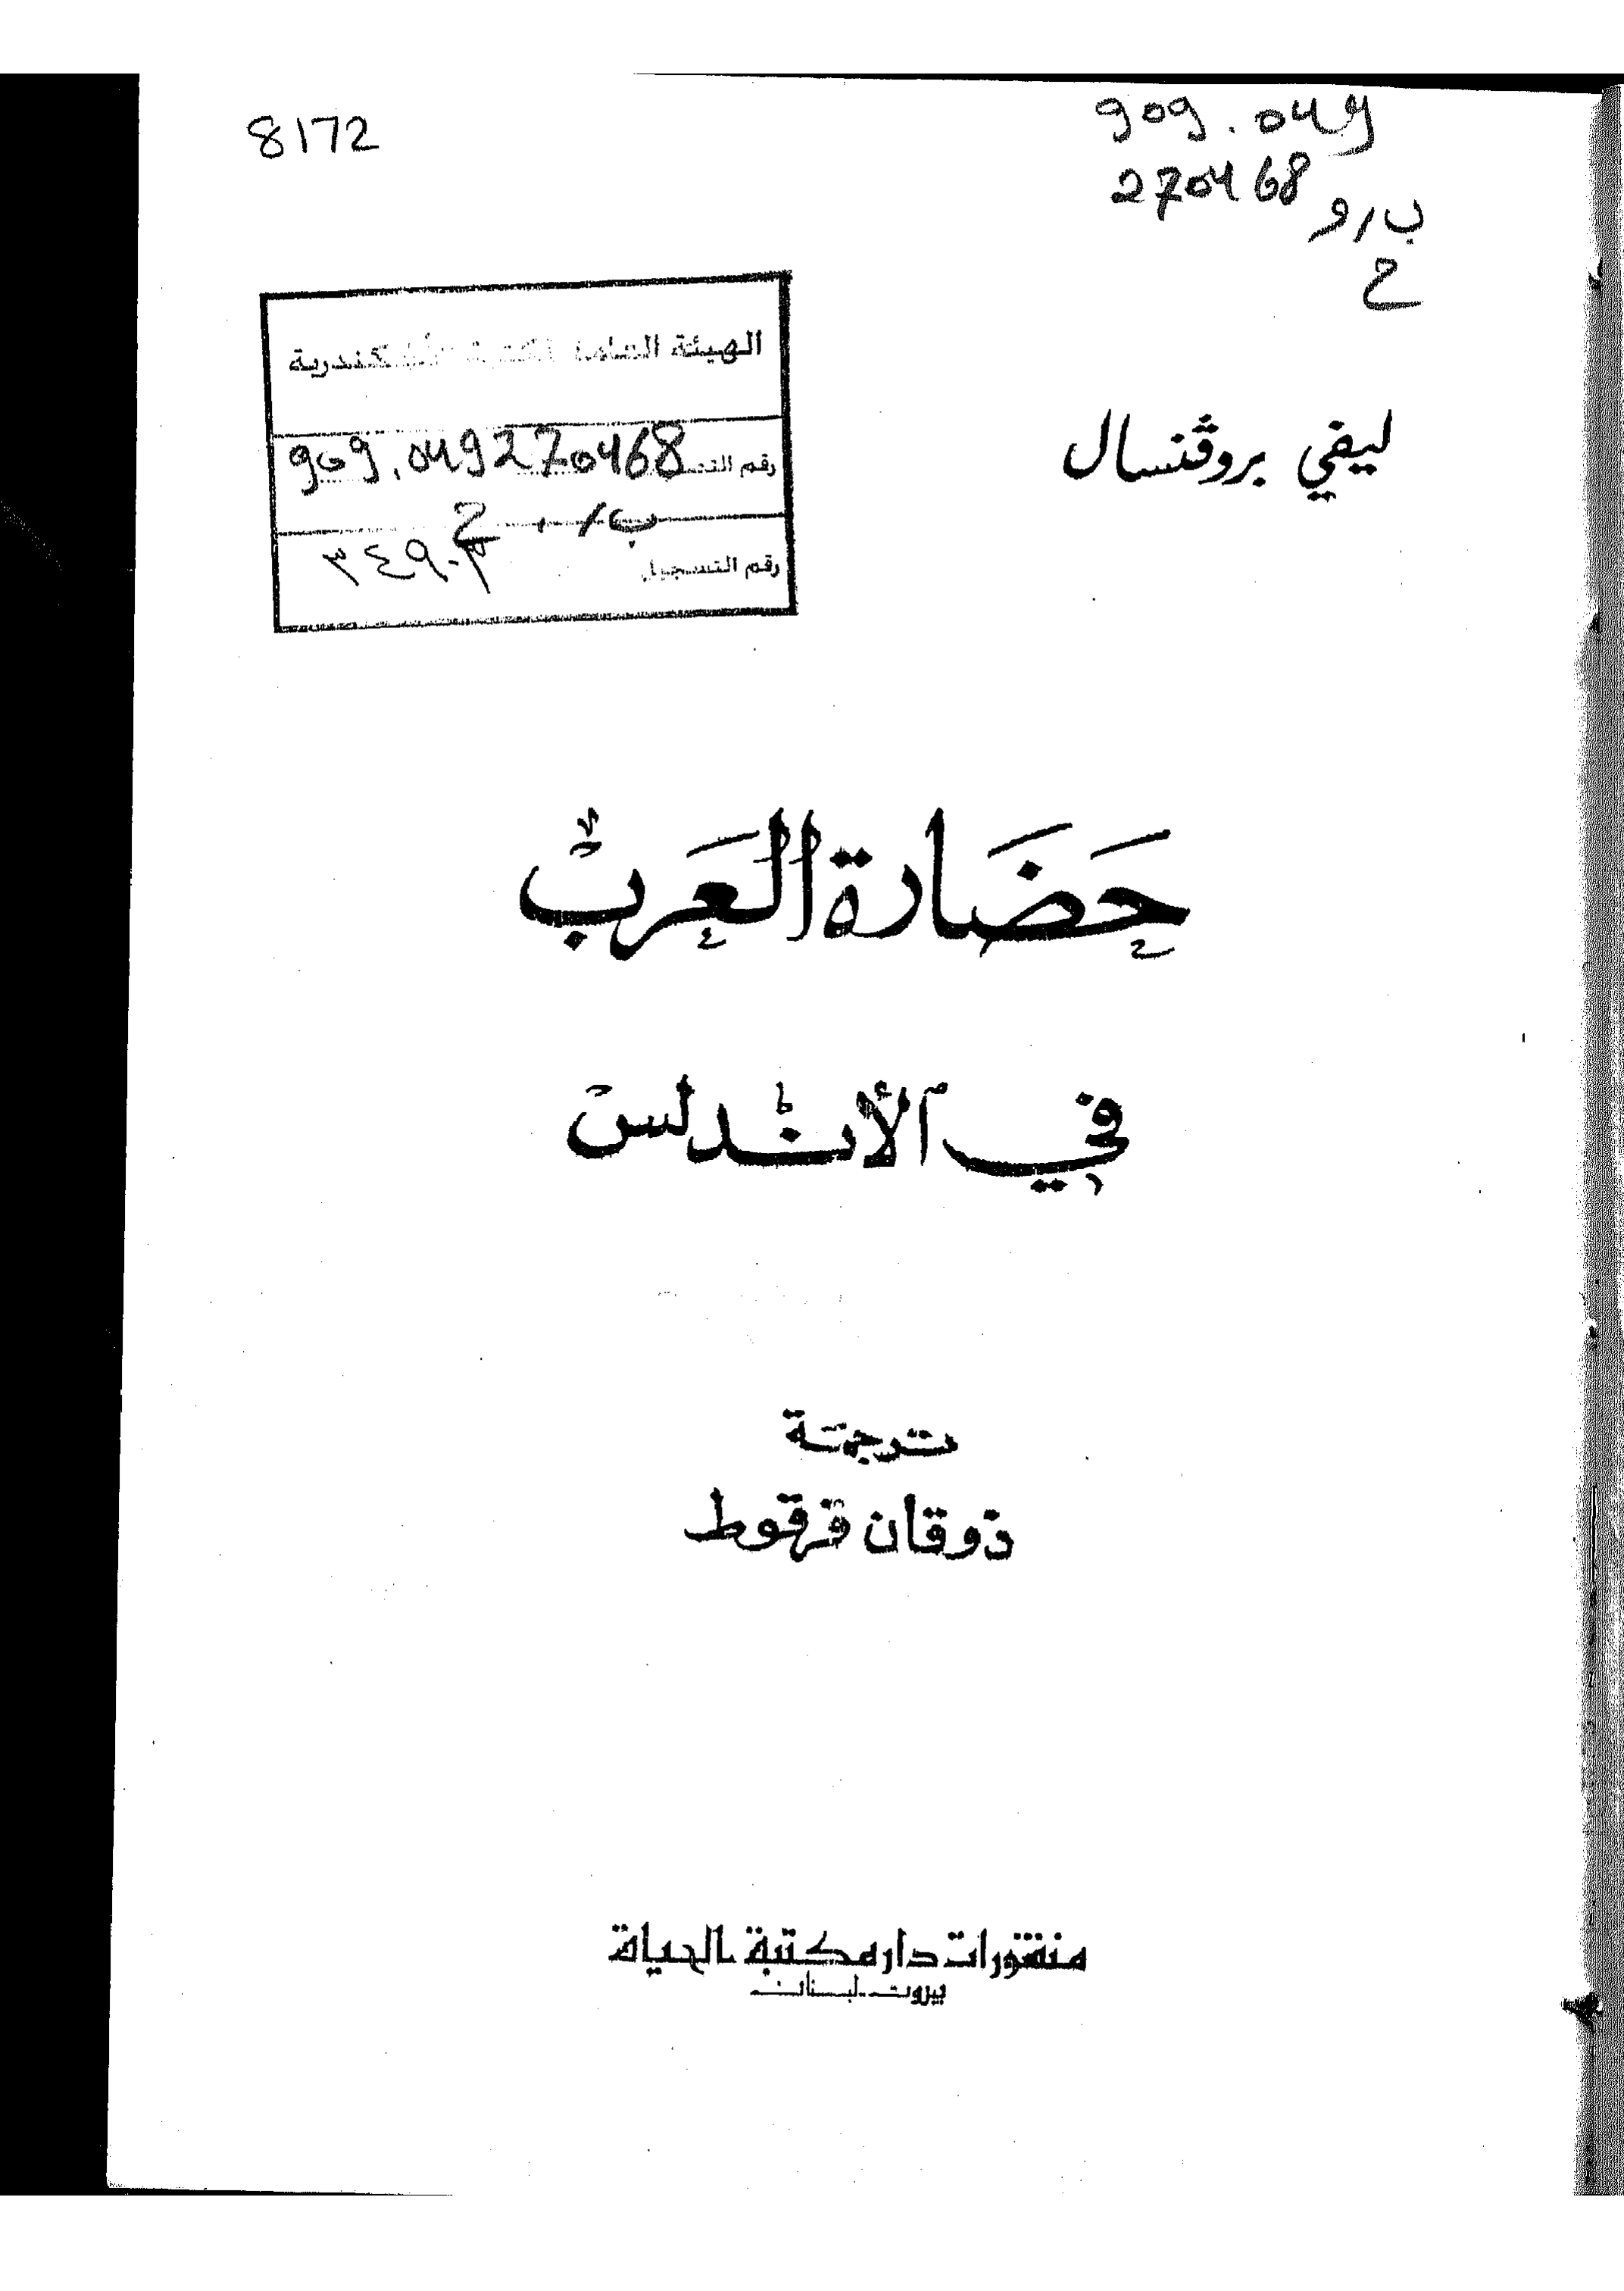 8172
909.049
270468
ب/رو
ح
الهيئة العامة لمكتبة الأسكندرية
رقم التصنيف 909.049270468
ب/ ح
رقم التسجيل
ليفي بروڤنسال
حَضَارة العَربْ
في الأندلس
ترجمة
ذوقان قرقوط
منشورات دار مكتبة الحياة
بيروت - لبنان